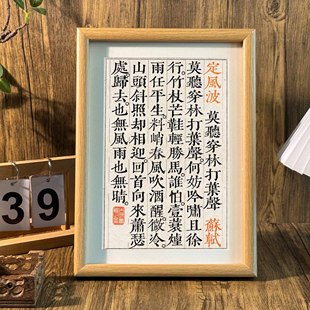 定風波 莫聽穿林打葉聲 蘇軾
莫聽穿林打葉聲何妨吟嘯且徐
行竹杖芒鞋輕勝馬誰怕壹蓑煙
雨任平生料峭春風吹酒醒微冷
山頭斜照却相迎回首向來蕭瑟
處歸去也無風雨也無晴
3 9